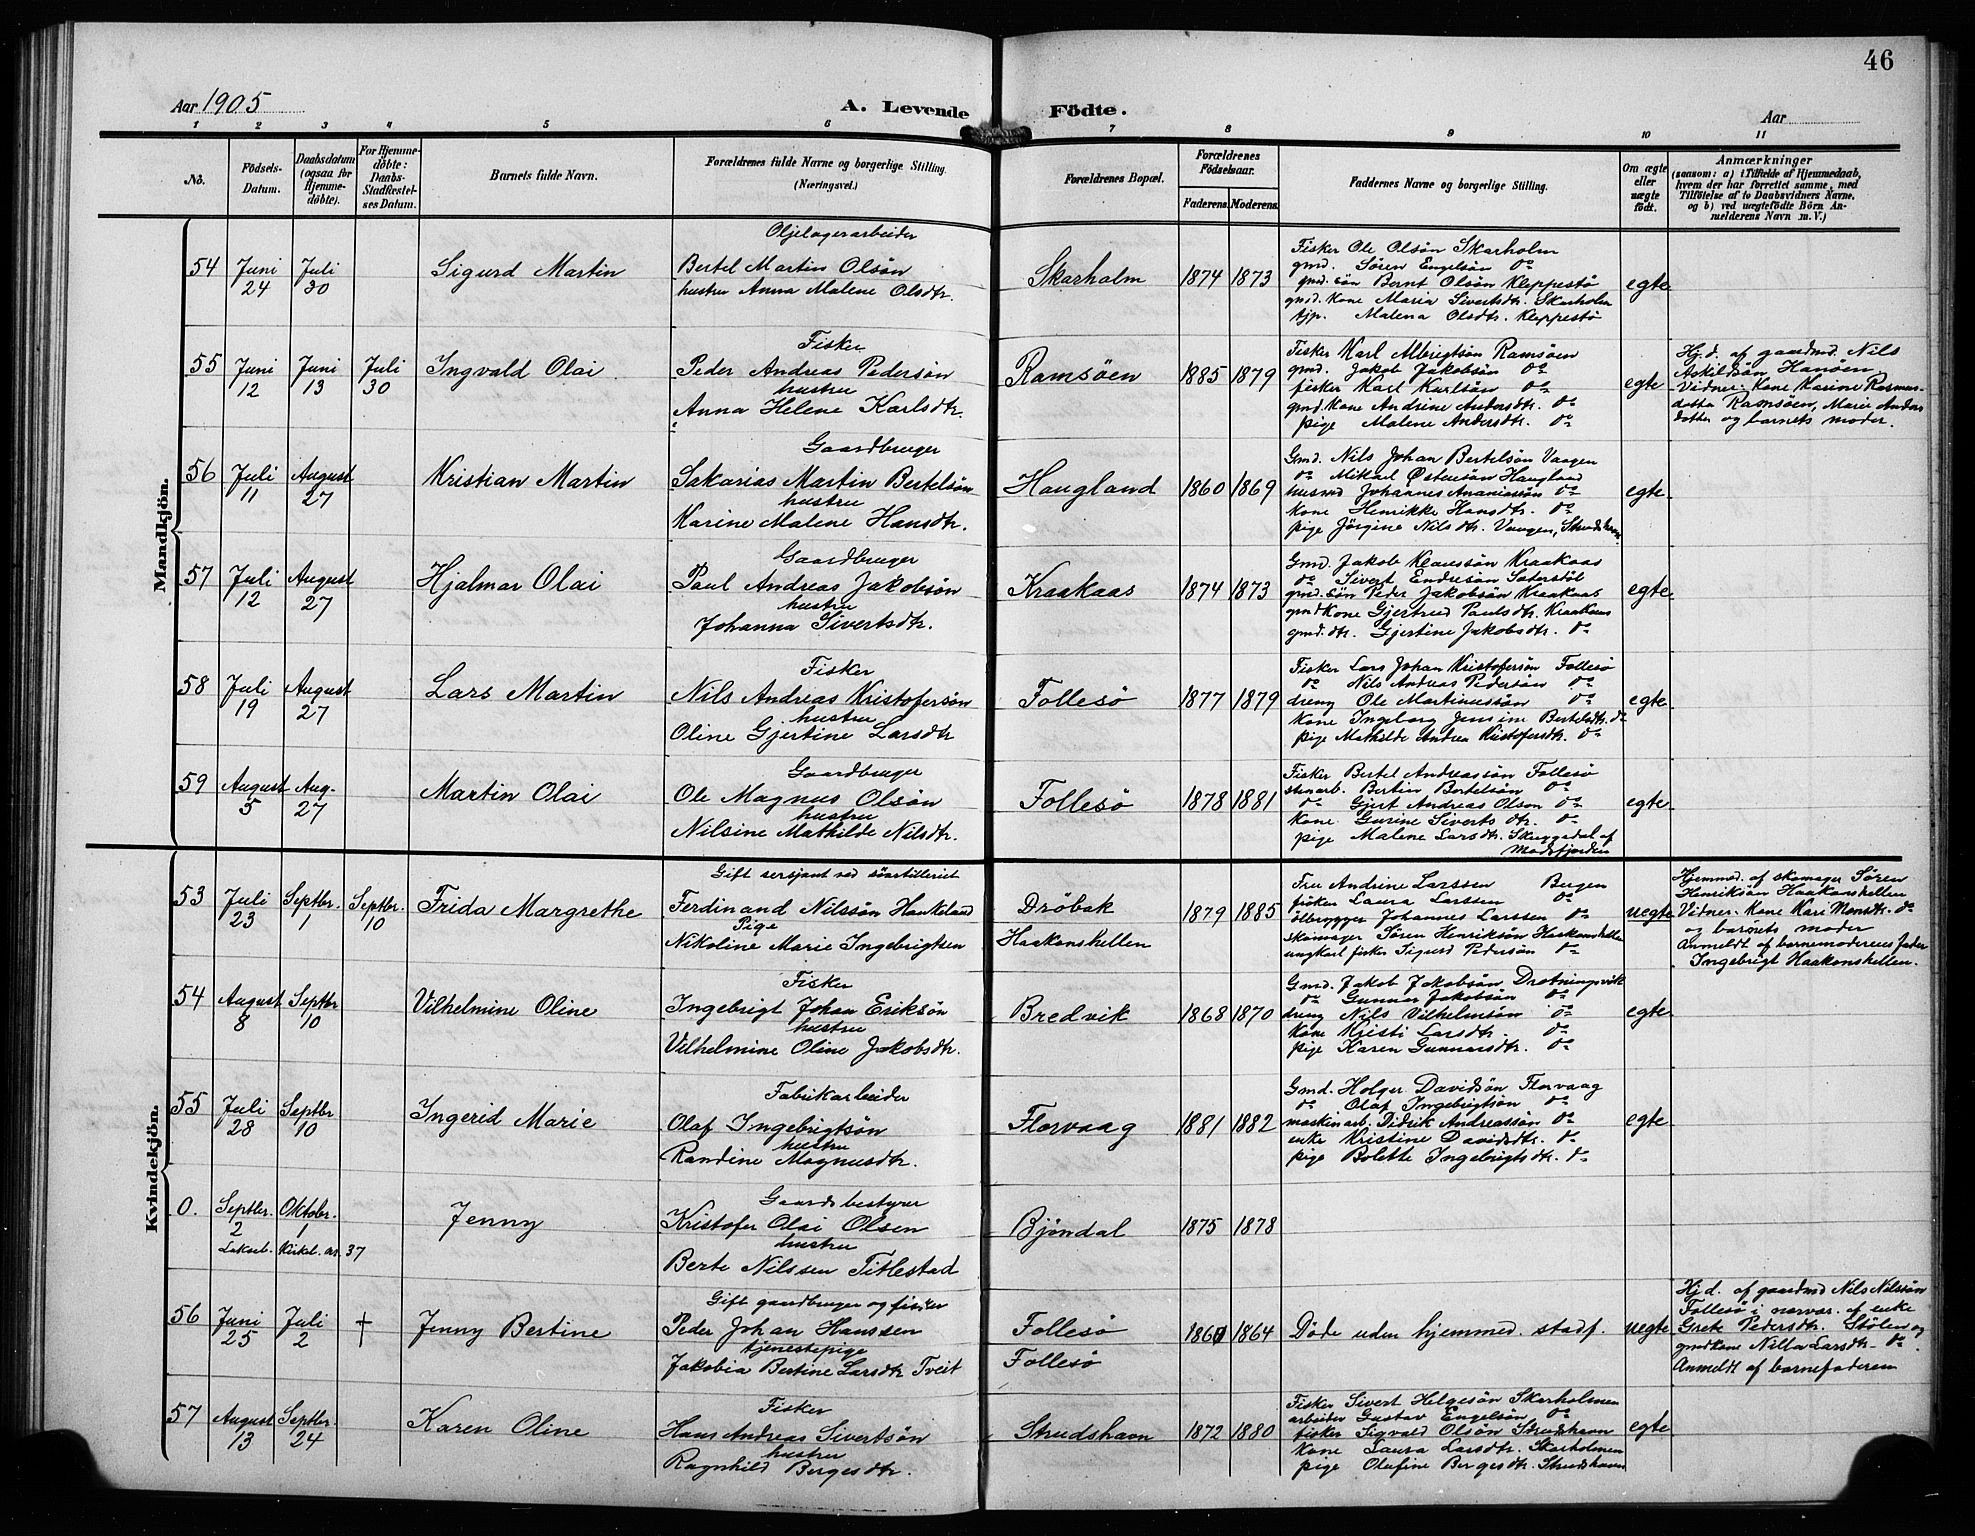 46
Aar 1905
A. Levende Födte.
Aar
1 2 3 4 5 6 7 8 9 10 11
No.
Födsels-
Datum.
Daabsdatum
(ogsaa for
Hjemme-
döbte).
For Hjemme-
döbte:
Daabs-
Stadfæstel-
ses Datum.
Barnets fulde Navn.
Forældrenes fulde Navne og borgerlige Stilling.
(Næringsvei.)
Forældrenes Bopæl.
Forældrenes
Födselsaar.
Faderens. Moderens.
Faddernes Navne og borgerlige Stilling.
Om ægte
eller
uægte
födt.
Anmærkninger
(saasom: a) i Tilfælde af Hjemmedaab,
hvem der har forrettet samme, med
Tilföielse af to Daabsvidners Navne,
og b) ved uægtefödte Börn An-
melderens Navn m. V.)
Mandkjön.
54
Juni
24
Juli
30
Sigurd Martin
Oljelagerarbeider
Bertel Martin Olsön
hustru Anna Malene Olsdtr.
Skarholm
1874 1873
Fisker Ole Olsön Skarholm
gmd. Sören Engelsön do
gmd. sön Bernt Olsön Kleppestö
gmd. kone Maria Sivertsdtr. Skarholm
tjp. Malena Olsdtr. Kleppestö
egte
55
Juni
12
Juni
13
Juli
30
Ingvald Olai
Fisker
Peder Andreas Pedersön
hustru
Anna Helene Karlsdtr.
Ramsöen
1885 1879
Fisker Karl Albrigtsön Ramsöen
gmd. Jakob Jakobsön do
fisker Karl Karlsön do
gmd. kone Andrine Andersdtr. do
pige Malene Andersdtr. do
egte
Hj.d. af gaardmd. Nils
Askildsön Hanöen
Vidner: Kone Marine Rasmus-
datter Ramsöen, Marie Anders
datter og barnets moder.
56
Juli
11
August
27
Kristian Martin
Gaardbruger
Sakarias Martin Bertelsön
hustru
Karine Malene Hansdtr.
Haugland
1860 1869
Gmd. Nils Johan Bertelsön Vaagen
do Mikael Östensön Haugland
husmd Johannes Ananiassön do
kone Henrikke Hansdtr. do
pige Jörgine Nilsdtr. Vaagen, Strudshavn
egte
57
Juli
12
August
27
Hjalmar Olai
Gaardbruger
Paul Andreas Jakobsön
hustru
Johanna Sivertsdtr.
Kraakaas
1874 1873
Gmd. Jakob Klaussön Kraakaas
do Sivert Endresön Sæterstöl
gmd. sön Peder Jakobsön Kraakaas
gmd kone Gjertrud Paulsdtr. Kraakaas
gmd. dtr. Gjertine Jakobsdtr. do
egte
58
Juli
19
August
27
Lars Martin
Fisker
Nils Andreas Kristofersön
hustru
Oline Gjertine Larsdtr
Follesö
1877 1879
Fisker Lars Johan Kristofersön Follesö
do Nils Andreas Pedersön do
dreng Ole Martinussön do
kone Ingeborg Jensine Bertelsdtr. do
pige Mathilde Andrea Kristofersdtr. do
egte
59
August
5
Aug.
27
Martin Olai
Gaardbruger
Ole Magnus Olsön
hustru
Nilsine Mathilde Nilsdtr.
Follesö
1878 1881
Fisker Bertel Andreassön Follesö
stenarb. Bertin Bertelsön do
do Gjert Andreas Olson do
kone Gurine Siverts dtr. do
pige Malene Larsdtr. Skuggedal af
Modsfjorden
egte
Kvindekjön.
53
Juli
23
Septbr.
1
Septbr.
10
Frida Margrethe
Gift sersjant ved söartilleriet
Ferdinand Nilssön Haukeland
Pige
Nikoline Marie Ingebrigtsen
Dröbak
Haakonshellen
1879 1885
Fru Andrine Larssen Bergen
fröken Laura Larssen do
ölbrygger Johannes Larssen do
skomager Sören Henriksön Haakonshellen
ungkarl fisker Sigurd Pedersön do
uegte
Hjemmed. af skomager Sören
Henriksön Haakonshellen
Vidner: Kone Kari Monsdtr. do
og barnets moder
Anmeldt af barnemoderens fader
Ingebrigt Haakonshellen.
54
August
8
Septbr
10
Vilhelmine Oline
Fisker
Ingebrigt Johan Eriksön
hustru
Vilhelmine Oline Jakobsdtr.
Bredvik
1868 1870
Gmd. Jakob Jakobsön Drotningsvik
do Gunnar Jakobsön do
dreng Nils Vilhelmsön do
kone Kristi Larsdtr. do
pige Karen Gunnarsdtr. do
egte
55
Juli
28
Septbr
10
Ingerid Marie
Fabrikarbeider
Olaf Ingebrigtsön
hustru
Randine Magnusdtr.
Florvaag
1881 1882
Gmd. Holger Davidsön Florvaag
do Olaf Ingebrigtsön do
maskinarb. Didrik Andreassön do
enke Kristine Davidsdtr. do
pige Bolette Ingebrigtsdtr. do
egte
0.
Septbr.
2
Oktobr.
1
Laksev. Kirkel. nr. 37
Jenny
Gaardsbestyrer
Kristofer Olai Olsen
hustru
Berte Nilssen Titlestad
Bjöndal
1875 1878
56
Juni
25
Juli
2
†
Jenny Bertine
Gift gaardbruger og fisker
Peder Johan Hanssen
tjenestepige
Jakobia Bertine Larsdtr Tveit
Follesö
Follesö
1867 1864
Döde uden hjemmed. stadf.
uegte
Hj.d. af gaardmd Nils Nilssön
Follesö i nærvær. af enke
Grete Pedersdtr. Stölen og
gmdkone Nilla Larsdtr. do
Anmeldt af barnefaderen
57
August
13
Septbr.
24
Karen Oline
Fisker
Hans Andreas Sivertsön
hustru
Ragnhild Bergesdtr.
Strudshavn
1872 1880
Fisker Sivert Helgesön Skarholmen
arbeider Gustav Engelsön do
fisker Sigvald Olsön Strudshavn
kone Laura Larsdtr. Skarholmen
pige Olufine Bergesdtr. Strudshavn
egte